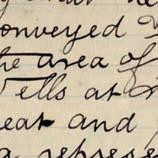 conveyed
the area of
Wells at
eat and
a represe